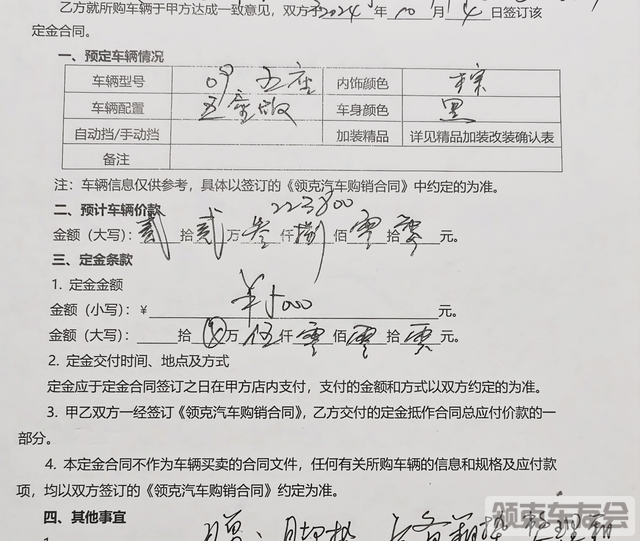 乙方就所购车辆于甲方达成一致意见，双方于2024年10月4日签订该
定金合同。
一、预定车辆情况
车辆型号 09 五座 内饰颜色 棕
车辆配置 五座版 车身颜色 黑
自动挡/手动挡 加装精品 详见精品加装改装确认表
备注
注：车辆信息仅供参考，具体以签订的《领克汽车购销合同》中约定的为准。
二、预计车辆价款 223800
金额（大写）：贰拾贰万叁仟捌佰零拾零元。
三、定金条款
1. 定金金额
金额（小写）：¥ ¥5000元。
金额（大写）：拾万伍仟零佰零拾零元。
2. 定金交付时间、地点及方式
定金应于定金合同签订之日在甲方店内支付，支付的金额和方式以双方约定的为准。
3. 甲乙双方一经签订《领克汽车购销合同》，乙方交付的定金抵作合同总应付价款的一
部分。
4. 本定金合同不作为车辆买卖的合同文件，任何有关所购车辆的信息和规格及应付款
项，均以双方签订的《领克汽车购销合同》约定为准。
四、其他事宜
领克车友会